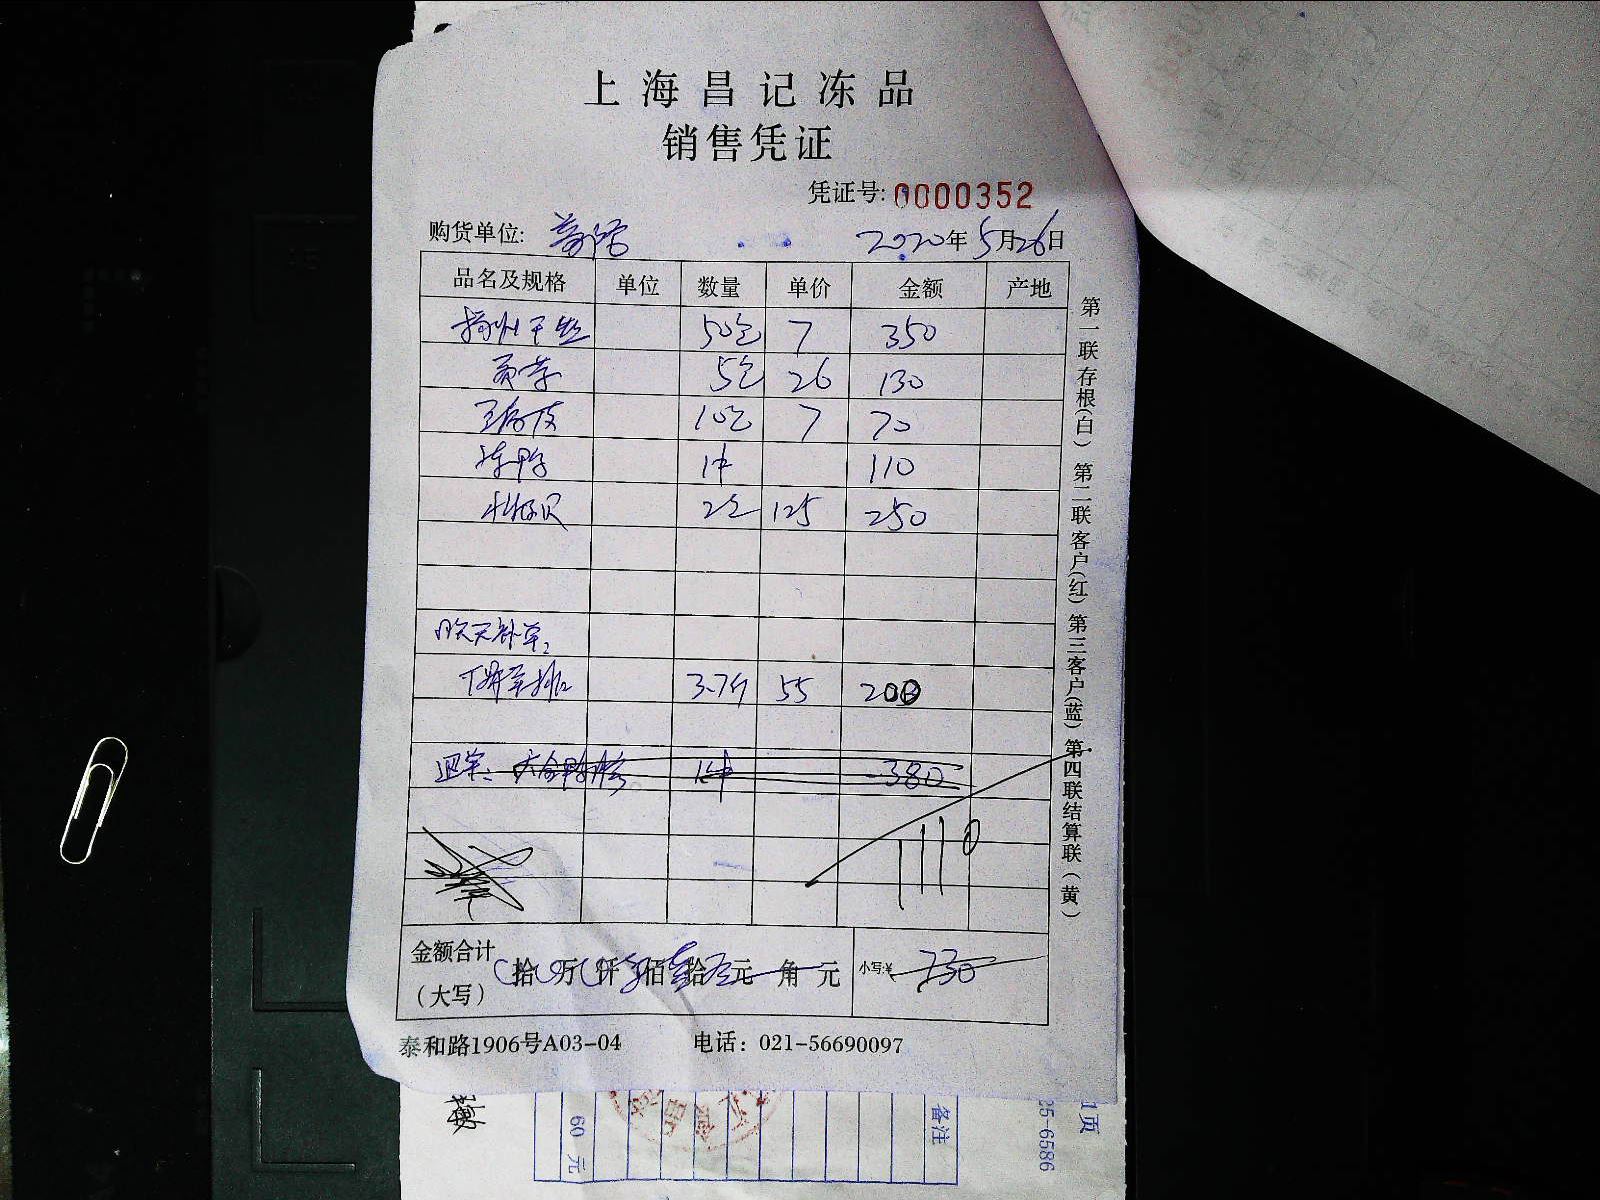 上海昌记冻品
销售凭证
凭证号: 0000352
购货单位: 2020年5月26日
品名及规格 单位 数量 单价 金额 产地
扬州干丝 50包 7 350
贡菜 5包 26 130
10包 7 70
冻鸭 1件 110
2包 125 250
昨天补单:
3.7斤 55 200
退单: 1件 -380
1110
金额合计(大写) 拾 万 仟 佰 拾 元 角 元 小写:¥ 730
泰和路1906号A03-04 电话: 021-56690097
第一联存根(白) 第二联客户(红) 第三客户(蓝) 第四联结算联(黄)
60 元
备注
25-6586
1页